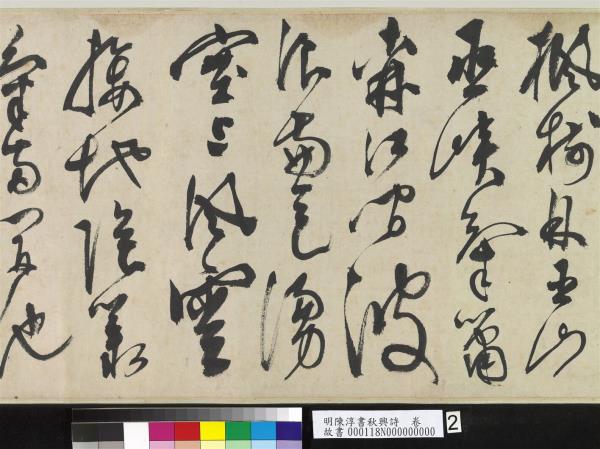 楓樹林巫山
巫峽氣蕭
森江間波
浪兼天湧
塞上風雲
接地陰叢
菊兩開他
明陳淳書秋興詩 卷
故書000118N000000000
2